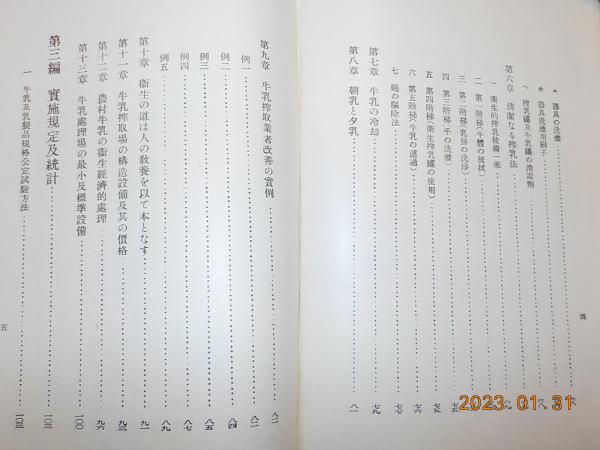 ニ 器具の洗滌
ホ 器具洗滌用刷子
ヘ 搾乳罐及牛乳罐の消毒劑
第六章 清潔なる搾乳法
一 衛生的搾乳技術一班
二 第一階梯(牛體の梳拭)
三 第二階梯(乳房の洗浄)
四 第三階梯(手の洗滌)
五 第四階梯(衛生搾乳罐の使用)
六 第五階梯(牛乳の濾過)
七 蠅の驅除法 七六
第七章 牛乳の冷却 七九
第八章 朝乳と夕乳 八一
四
第九章 牛乳搾取業者改善の實例 八二
例一 八二
例二 八四
例三 八五
例四 八七
例五 八九
第十章 衛生の道は人の教養を以て本となす 九一
第十一章 牛乳搾取場の構造設備及其の價格 九三
第十二章 農村牛乳の衛生經濟的處理 九六
第十三章 牛乳處理場の最小及標準設備 一〇〇
第三編 實施規定及統計 一〇三
一 牛乳及乳製品規格公定試驗方法 一〇三
五
2023.01.31